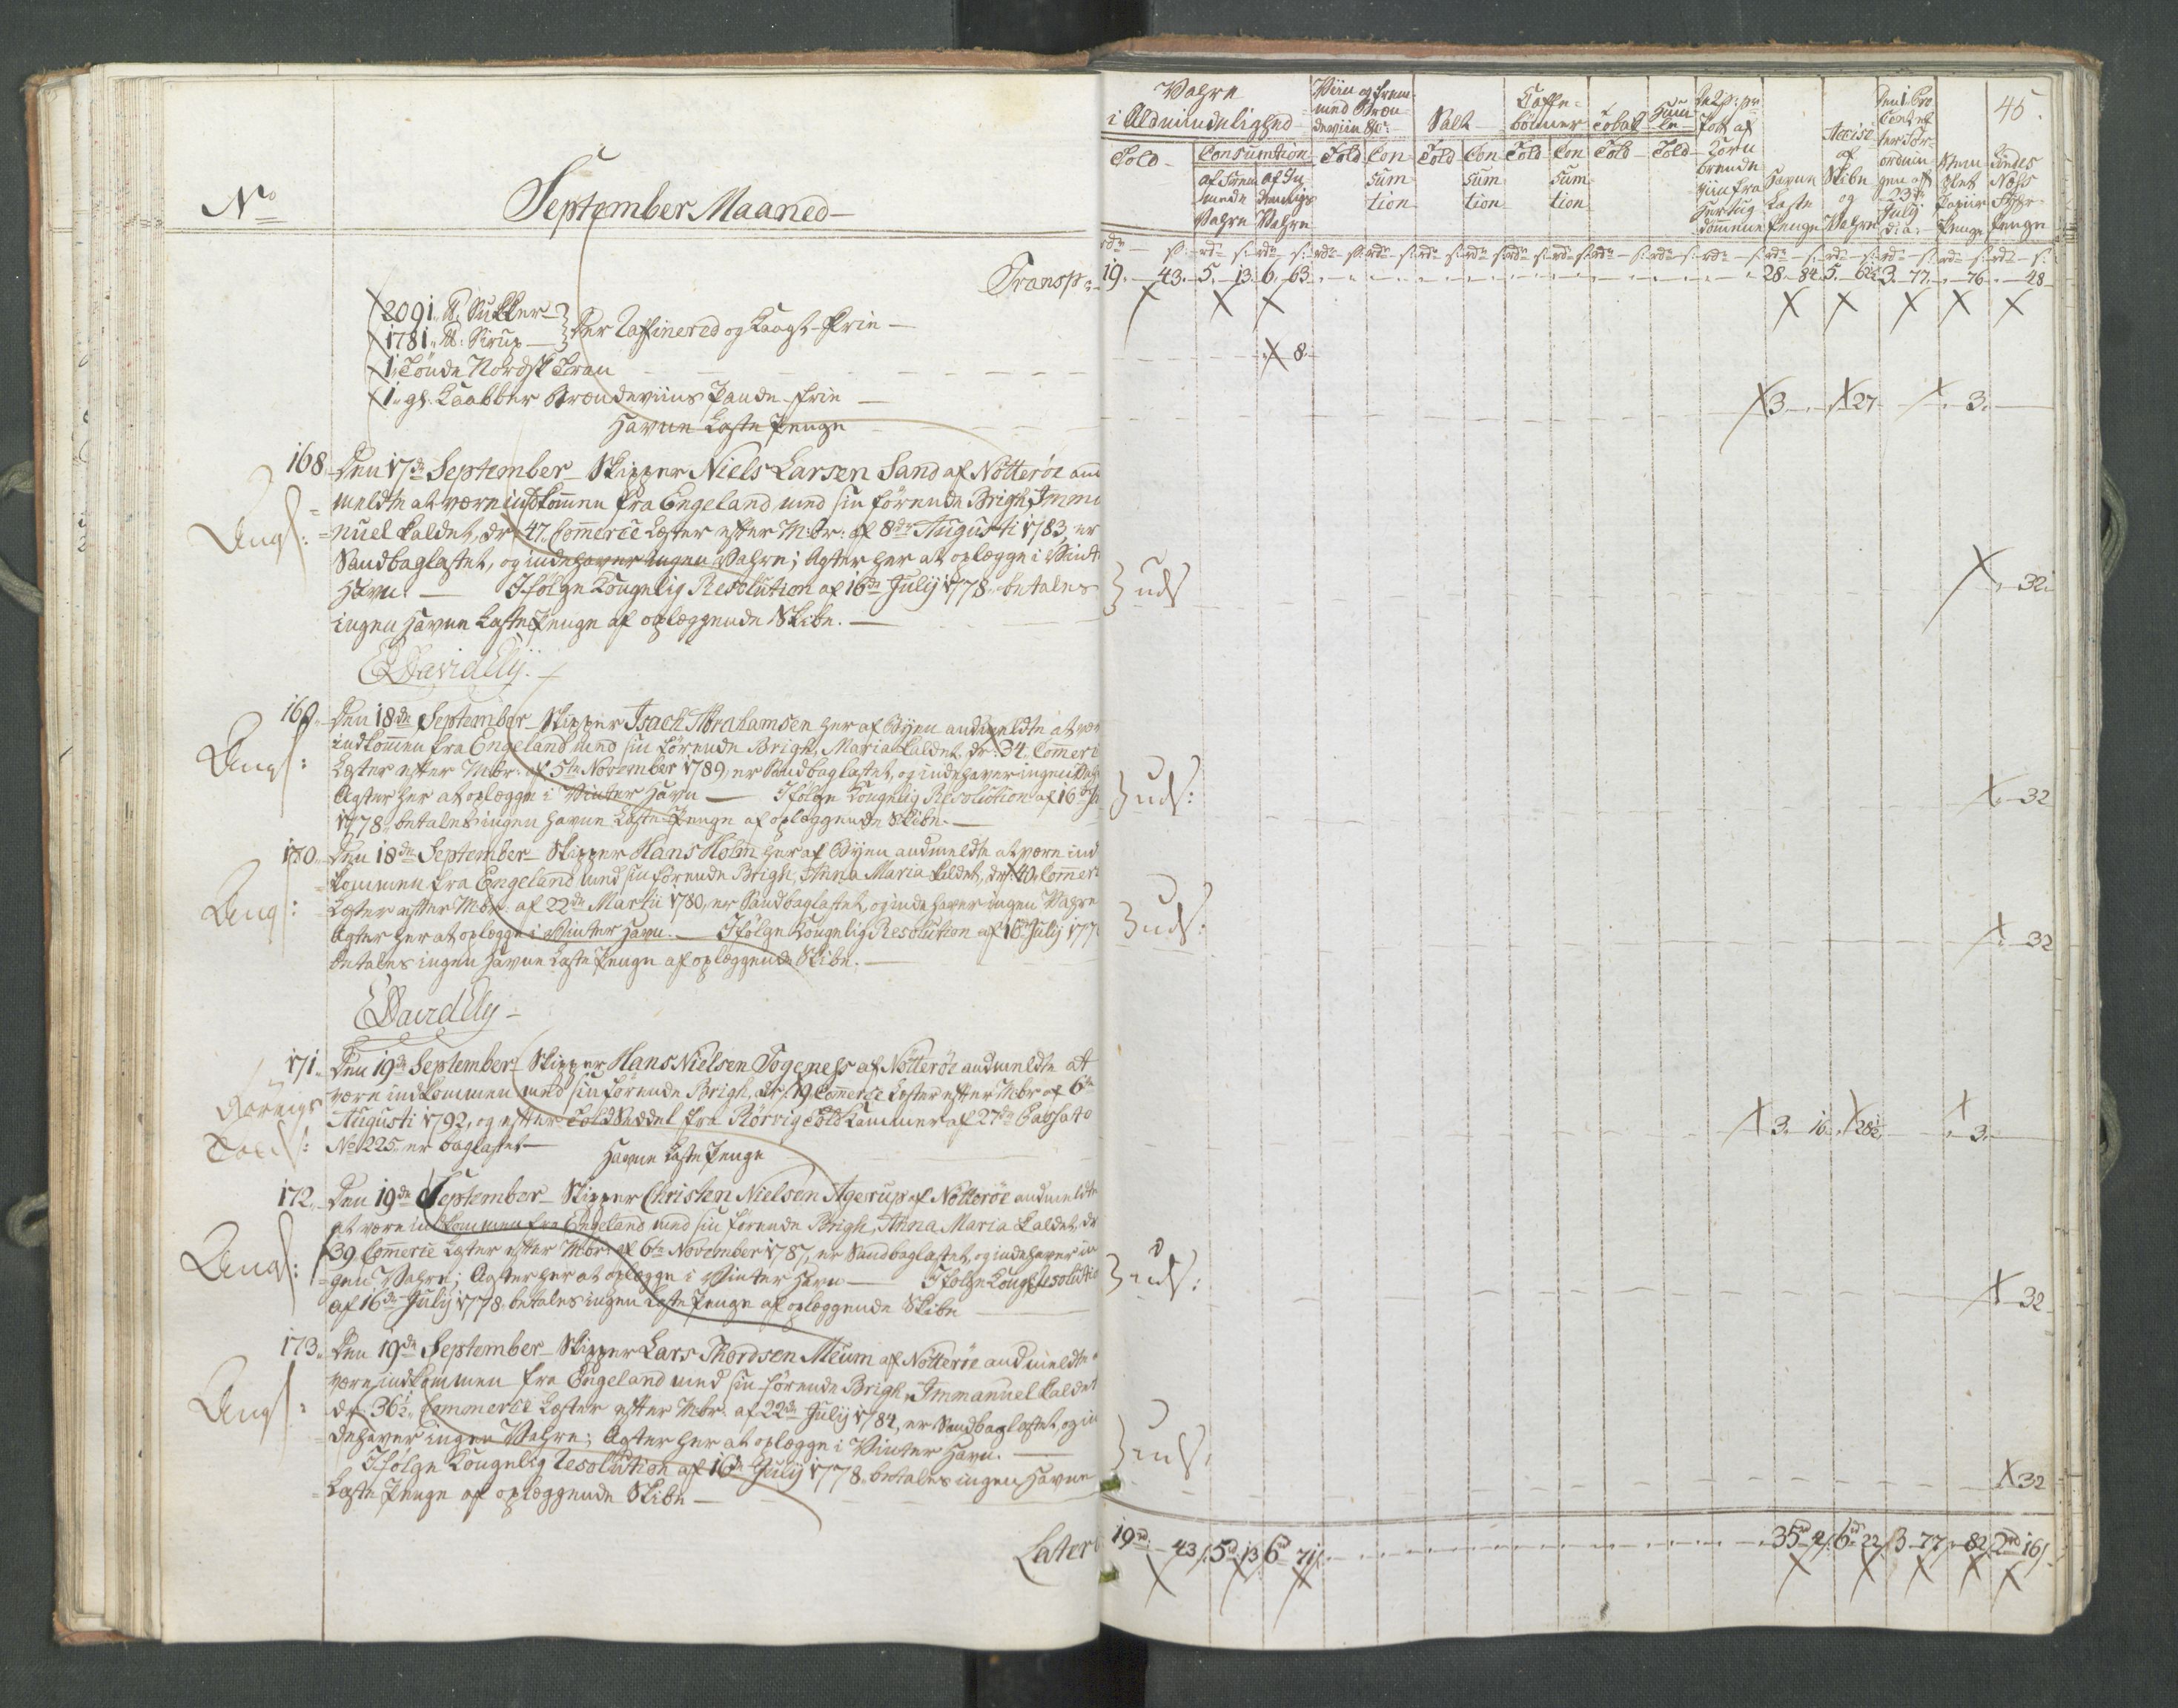 No
September Maaned
Transp:
2091 ℔ Sukker
1781 ℔: Sirup
Her Raffinered og Kaagt frie
1 Tönde Nordsk Tran
1 gl. Kaabber Brændeviins Pande frie
Havne Laste Penge
168. Den 17de September Skipper Niels Larsen Sand af Nötterøe an
meldte at være indkommen fra Engeland med sin førende Brigh, Imma
nuel kaldet, dr: 47 Commerce Læster efter Mbr: af 8de Augusti 1783, er
Sandbaglastet, og indehaver ingen Vahre; Agter her at oplægge i Vinter
Havn. Ifølge Kongelig Resolution af 16de Julij 1778 betales
ingen Havne Laste Penge af oplæggende Skibe.
Engl:
EDavidElij.
169. Den 18de September Skipper Isach Abrahamsen her af Byen andmeldte at vær
indkommen fra Engeland med sin førende Brigh, Maria kaldet, dr: 34 Commerce
Læster efter Mbr: af 5te November 1789, er Sandbaglastet, og indehaver ingen Vahre
Agter her at oplægge i Vinter Havn Ifølge Kongelig Resolution af 16de Ju
1778 betales ingen Havne Laste Penge af oplæggende Skibe.
Engl:
170. Den 18de September Skipper Hans Holm her af Byen andmeldte at være ind
kommen fra Engeland med sin førende Brigh, Anna Maria kaldet, dr: 40 Commerce
Læster efter Mbr: af 22de Martii 1780, er Sandbaglastet, og indehaver ingen Vahre
Agter her at oplægge i Vinter Havn. Ifølge Kongelig Resolution af 16de Julij 177
betales ingen Havne Laste Penge af oplæggende Skibe.
Engl:
EDavidElij
171. Den 19de September Skipper Hans Nielsen Fogenæss af Nötterøe andmeldte at
være indkommen med sin førende Brigh, dr: 19 Commerce Læster efter Mbr af 6te
Augusti 1792, og efter ToldSeddel fra Rörvig ToldKammer af 27de
No 225 er baglastet
Havne Laste Penge
172. Den 19de September Skipper Christen Nielsen Agerup af Nötterøe andmeldte
at være indkommen fra Engeland med sin førende Brigh, Anna Maria kaldet, dr
39 Commerce Læster efter Mbr: af 6te November 1787, er Sandbaglastet, og indehaver in
gen Vahre; Agter her at oplægge i Vinter Havn Ifølge Kongl Resolution
af 16de Julij 1778 betales ingen Laste Penge af oplæggende Skibe
Engl:
173. Den 19de September Skipper Lars Thordsen Meum af Nötterøe andmeldte
være indkommen fra Engeland med sin førende Brigh, Immanuel kaldet
dr: 36½ Commerce Læster efter Mbr: af 22de Julij 1784, er Sandbaglastet, og in
dehaver ingen Vahre; Agter her at oplægge i Vinter Havn.
Ifølge Kongelig Resolution af 16de Julij 1778 betales ingen Havne
Laste Penge af oplæggende Skibe
Engl:
Lateris
45.
Vahre
i Almindelighed
Viin og frem
med Bræn
deviin
Salt
Kaffe
bönner
Tobak
Told
Consumtion
Told Con Told Con Told Con Told Told
sum sum sum
tion tion tion
af frem
mede
Vahre
af In
denlige
Vahre
Havne
Laste
Penge
Accise
af
Skibe
og
Vahre
23de
Julij
Stem
plet
Papiir
Penge
Penge
19 43 5 13 6 63 28 84 5 3 77 76 48
8
3 27 3
32
32
32
3 16 28½ 3
32
32
19rd 43 5rd 13 6rd 71 35rd 4 6rd 22 3 77 82 2rd 16